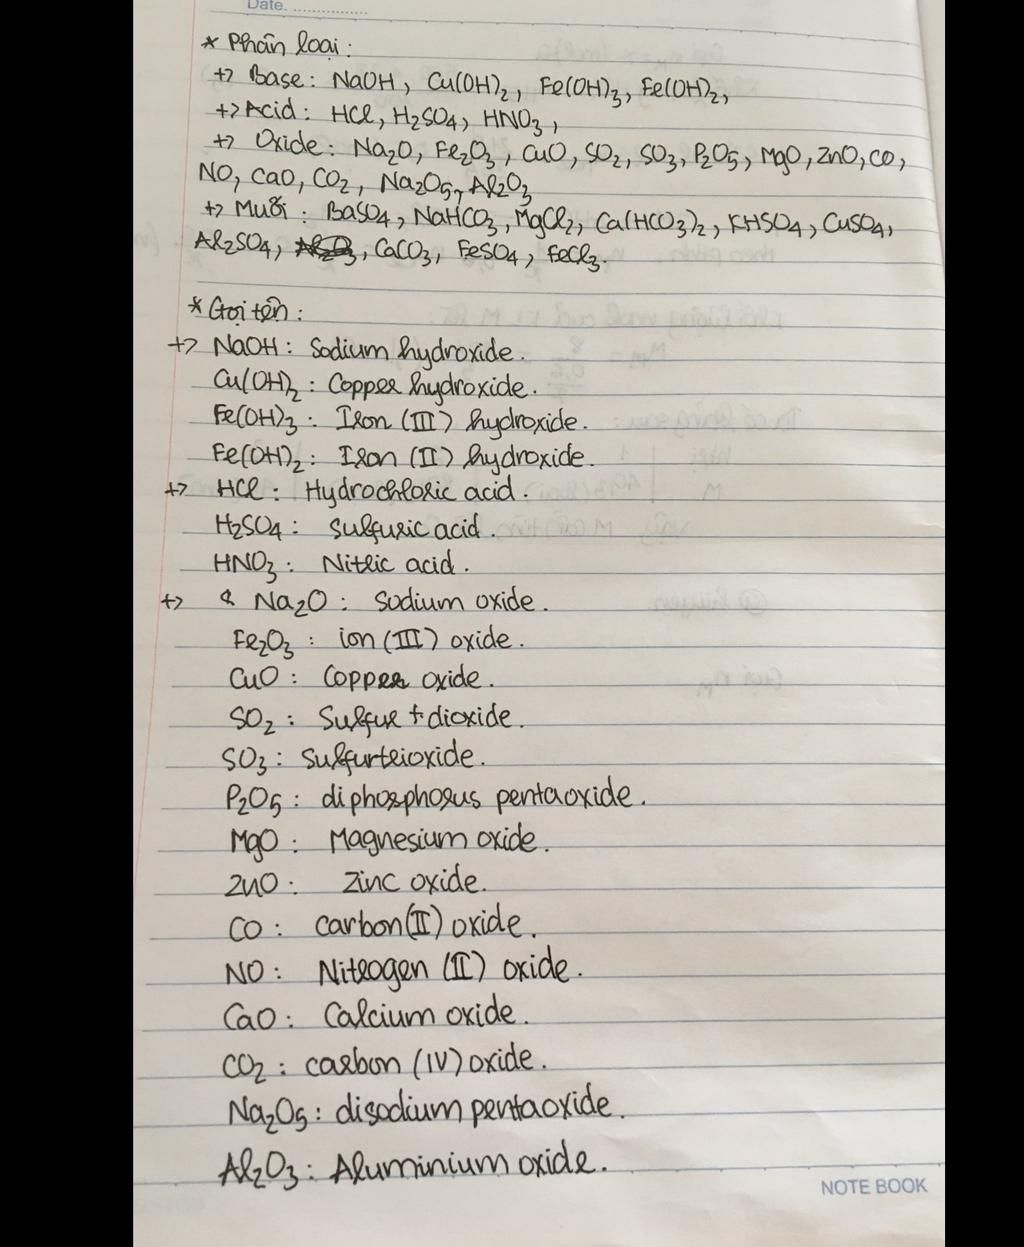 Date. ................
* Phân loại:
+> Base: NaOH, Cu(OH)2, Fe(OH)3, Fe(OH)2,
+> Acid: HCl, H2SO4, HNO3,
+> Oxide: Na2O, Fe2O3, CuO, SO2, SO3, P2O5, MgO, ZnO, CO,
NO, CaO, CO2, Na2O5, Al2O3
+> Muối: BaSO4, NaHCO3, MgCl2, Ca(HCO3)2, KHSO4, CuSO4,
Al2SO4, CaCO3, FeSO4, FeCl3.
* Gọi tên:
+> NaOH: Sodium hydroxide.
Cu(OH)2: Copper hydroxide.
Fe(OH)3: Iron (III) hydroxide.
Fe(OH)2: Iron (II) hydroxide.
+> HCl: Hydrochloric acid.
H2SO4: Sulfuric acid.
HNO3: Nitric acid.
+> Na2O: Sodium oxide.
Fe2O3: ion (III) oxide.
CuO: Copper oxide.
SO2: Sulfur dioxide.
SO3: Sulfurtrioxide.
P2O5: diphosphorus pentaoxide.
MgO: Magnesium oxide.
ZnO: Zinc oxide.
CO: carbon(II) oxide.
NO: Nitrogen (II) oxide.
CaO: Calcium oxide.
CO2: carbon (IV) oxide.
Na2O5: disodium pentaoxide.
Al2O3: Aluminium oxide.
NOTE BOOK